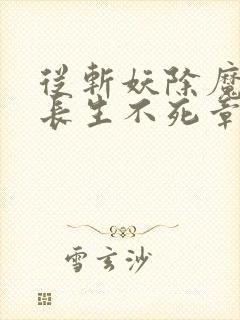 從斬妖除魔
長生不死章
雪玄沙